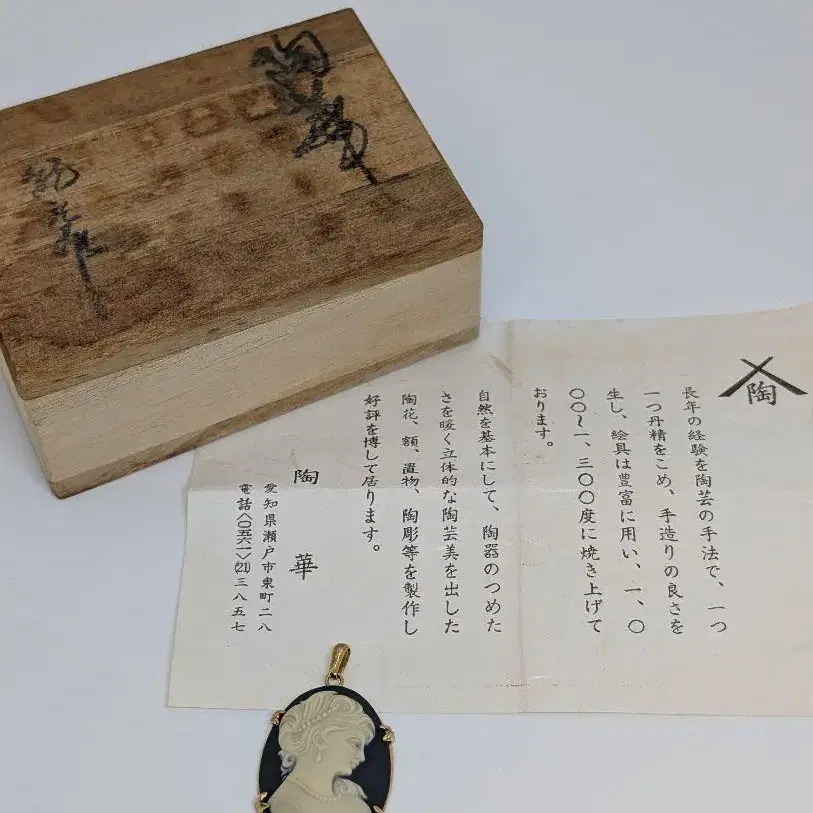 陶
長年の経験を陶芸の手法で、一つ
一つ丹精をこめ、手造りの良さを
生し、絵具は豊富に用い、一、〇
〇〇〜一、三〇〇度に焼き上げて
おります。
自然を基本にして、陶器のつめた
さを暖く立体的な陶芸美を出した
陶花、額、置物、陶彫等を製作し
好評を博して居ります。
陶華
愛知県瀬戸市東町二ノ八
電話〈〇五六一〉(21)三八五七
陶